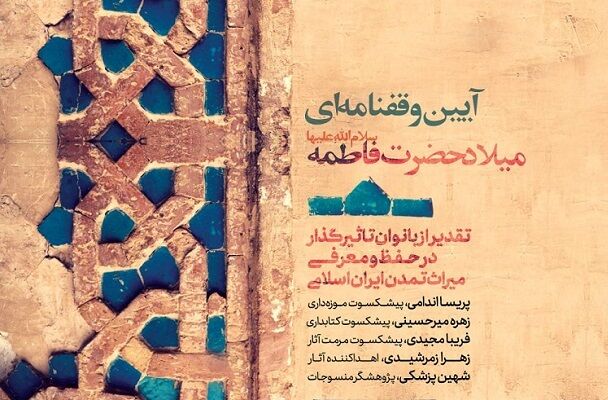 آیین وقفنامه‌ای
میلاد حضرت فاطمه سلام الله علیها
تقدیر از بانوان تاثیرگذار
در حفظ و معرفی
میراث تمدن ایران اسلامی
پریسا اندامی، پیشکسوت موزه‌داری
زهره میرحسینی، پیشکسوت کتابداری
فریبا مجیدی، پیشکسوت مرمت آثار
زهرا زمرشیدی، اهداکننده آثار
شهین پزشکی، پژوهشگر منسوجات